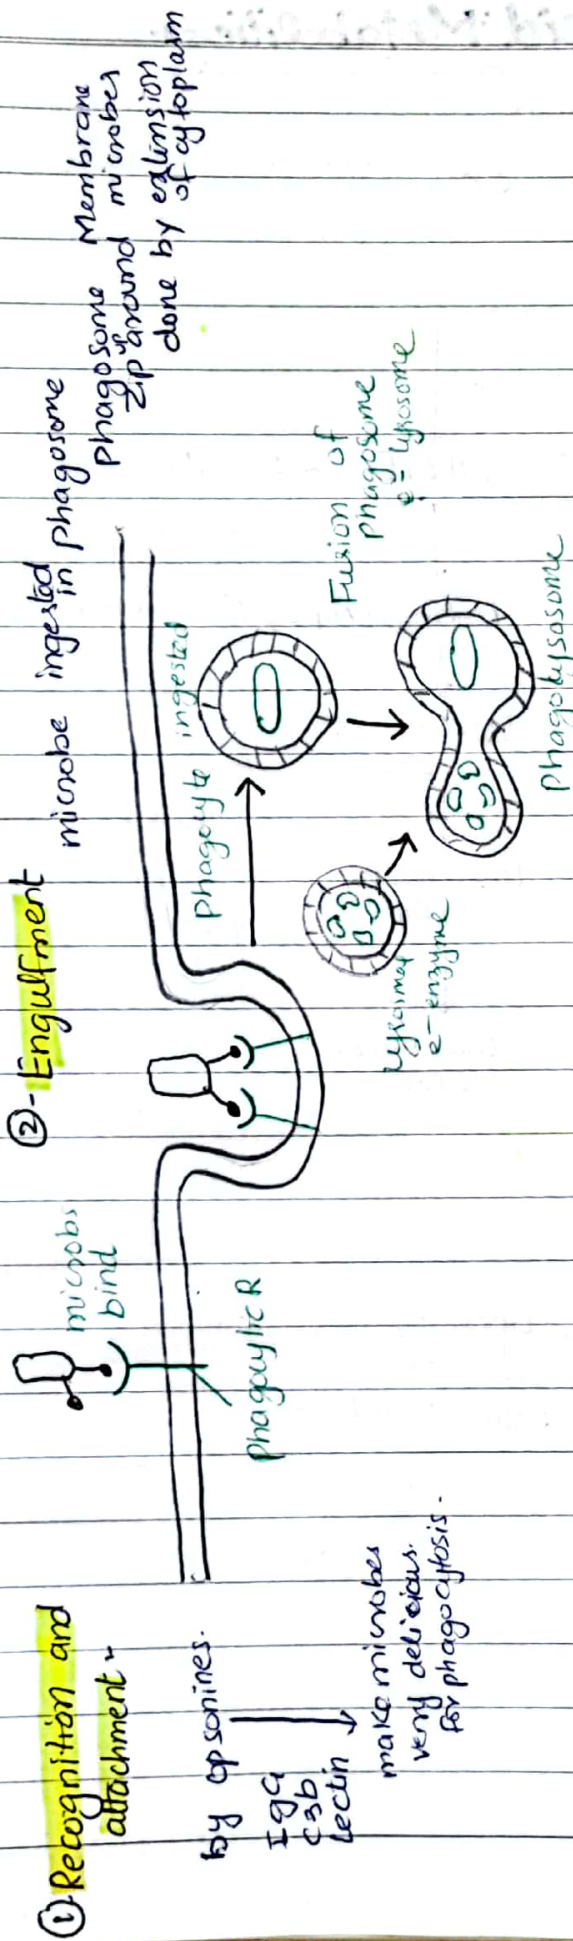 ① Recognition and
attachment -
by opsonines.
IgG
C3b
Lectin
make microbes
very delicious.
for phagocytosis.
microbs
bind
phagocytic R
② - Engulfment
microbe ingested
in phagosome
phagosome Membrane
Zip around microbes
done by extension
of cytoplasm
Phagocyte ingested
lysosomes
c- enzyme
Fusion of
phagosome
c- lysosome
Phagolysosome